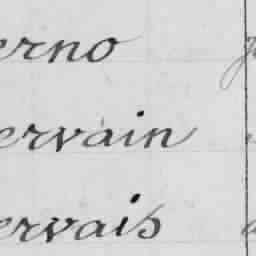 erno
ervain
ervais